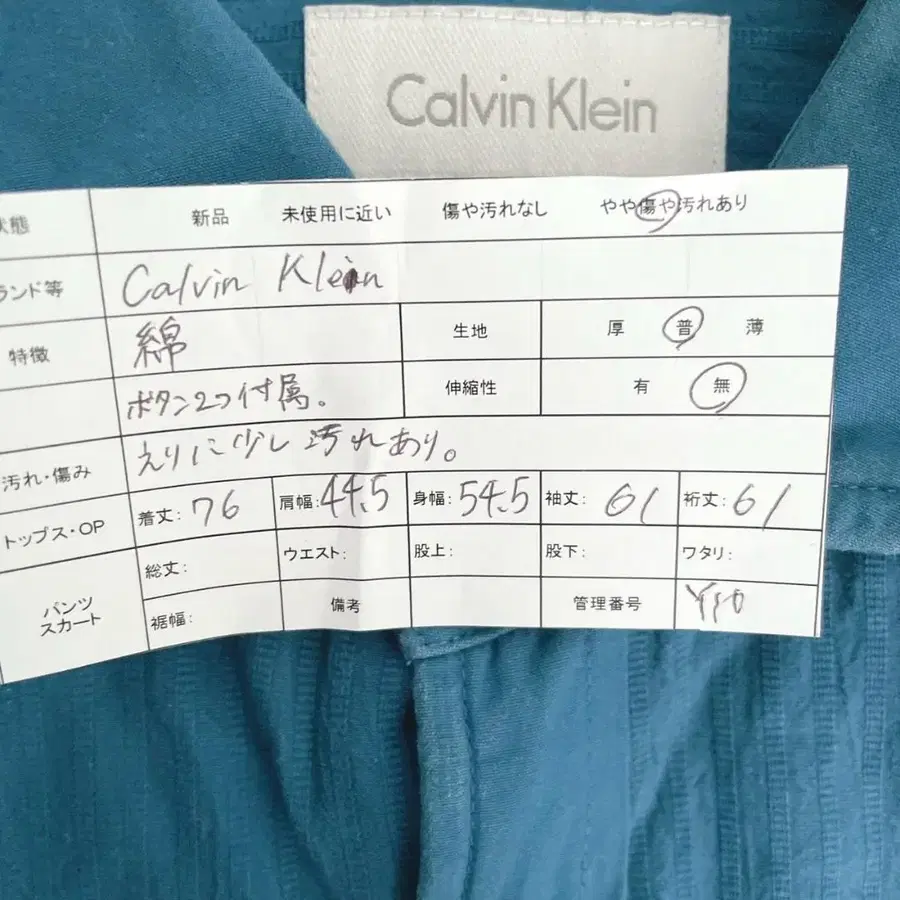 Calvin Klein
状態 新品 未使用に近い 傷や汚れなし やや傷や汚れあり
ランド等 Calvin Klein
特徴 綿 生地 厚 普 薄
ボタン2つ付属。 伸縮性 有 無
汚れ・傷み えりに少し汚れあり。
トップス・OP 着丈: 76 肩幅: 44.5 身幅: 54.5 袖丈: 61 裄丈: 61
パンツ スカート 総丈: ウエスト: 股上: 股下: ワタリ:
裾幅: 備考 管理番号